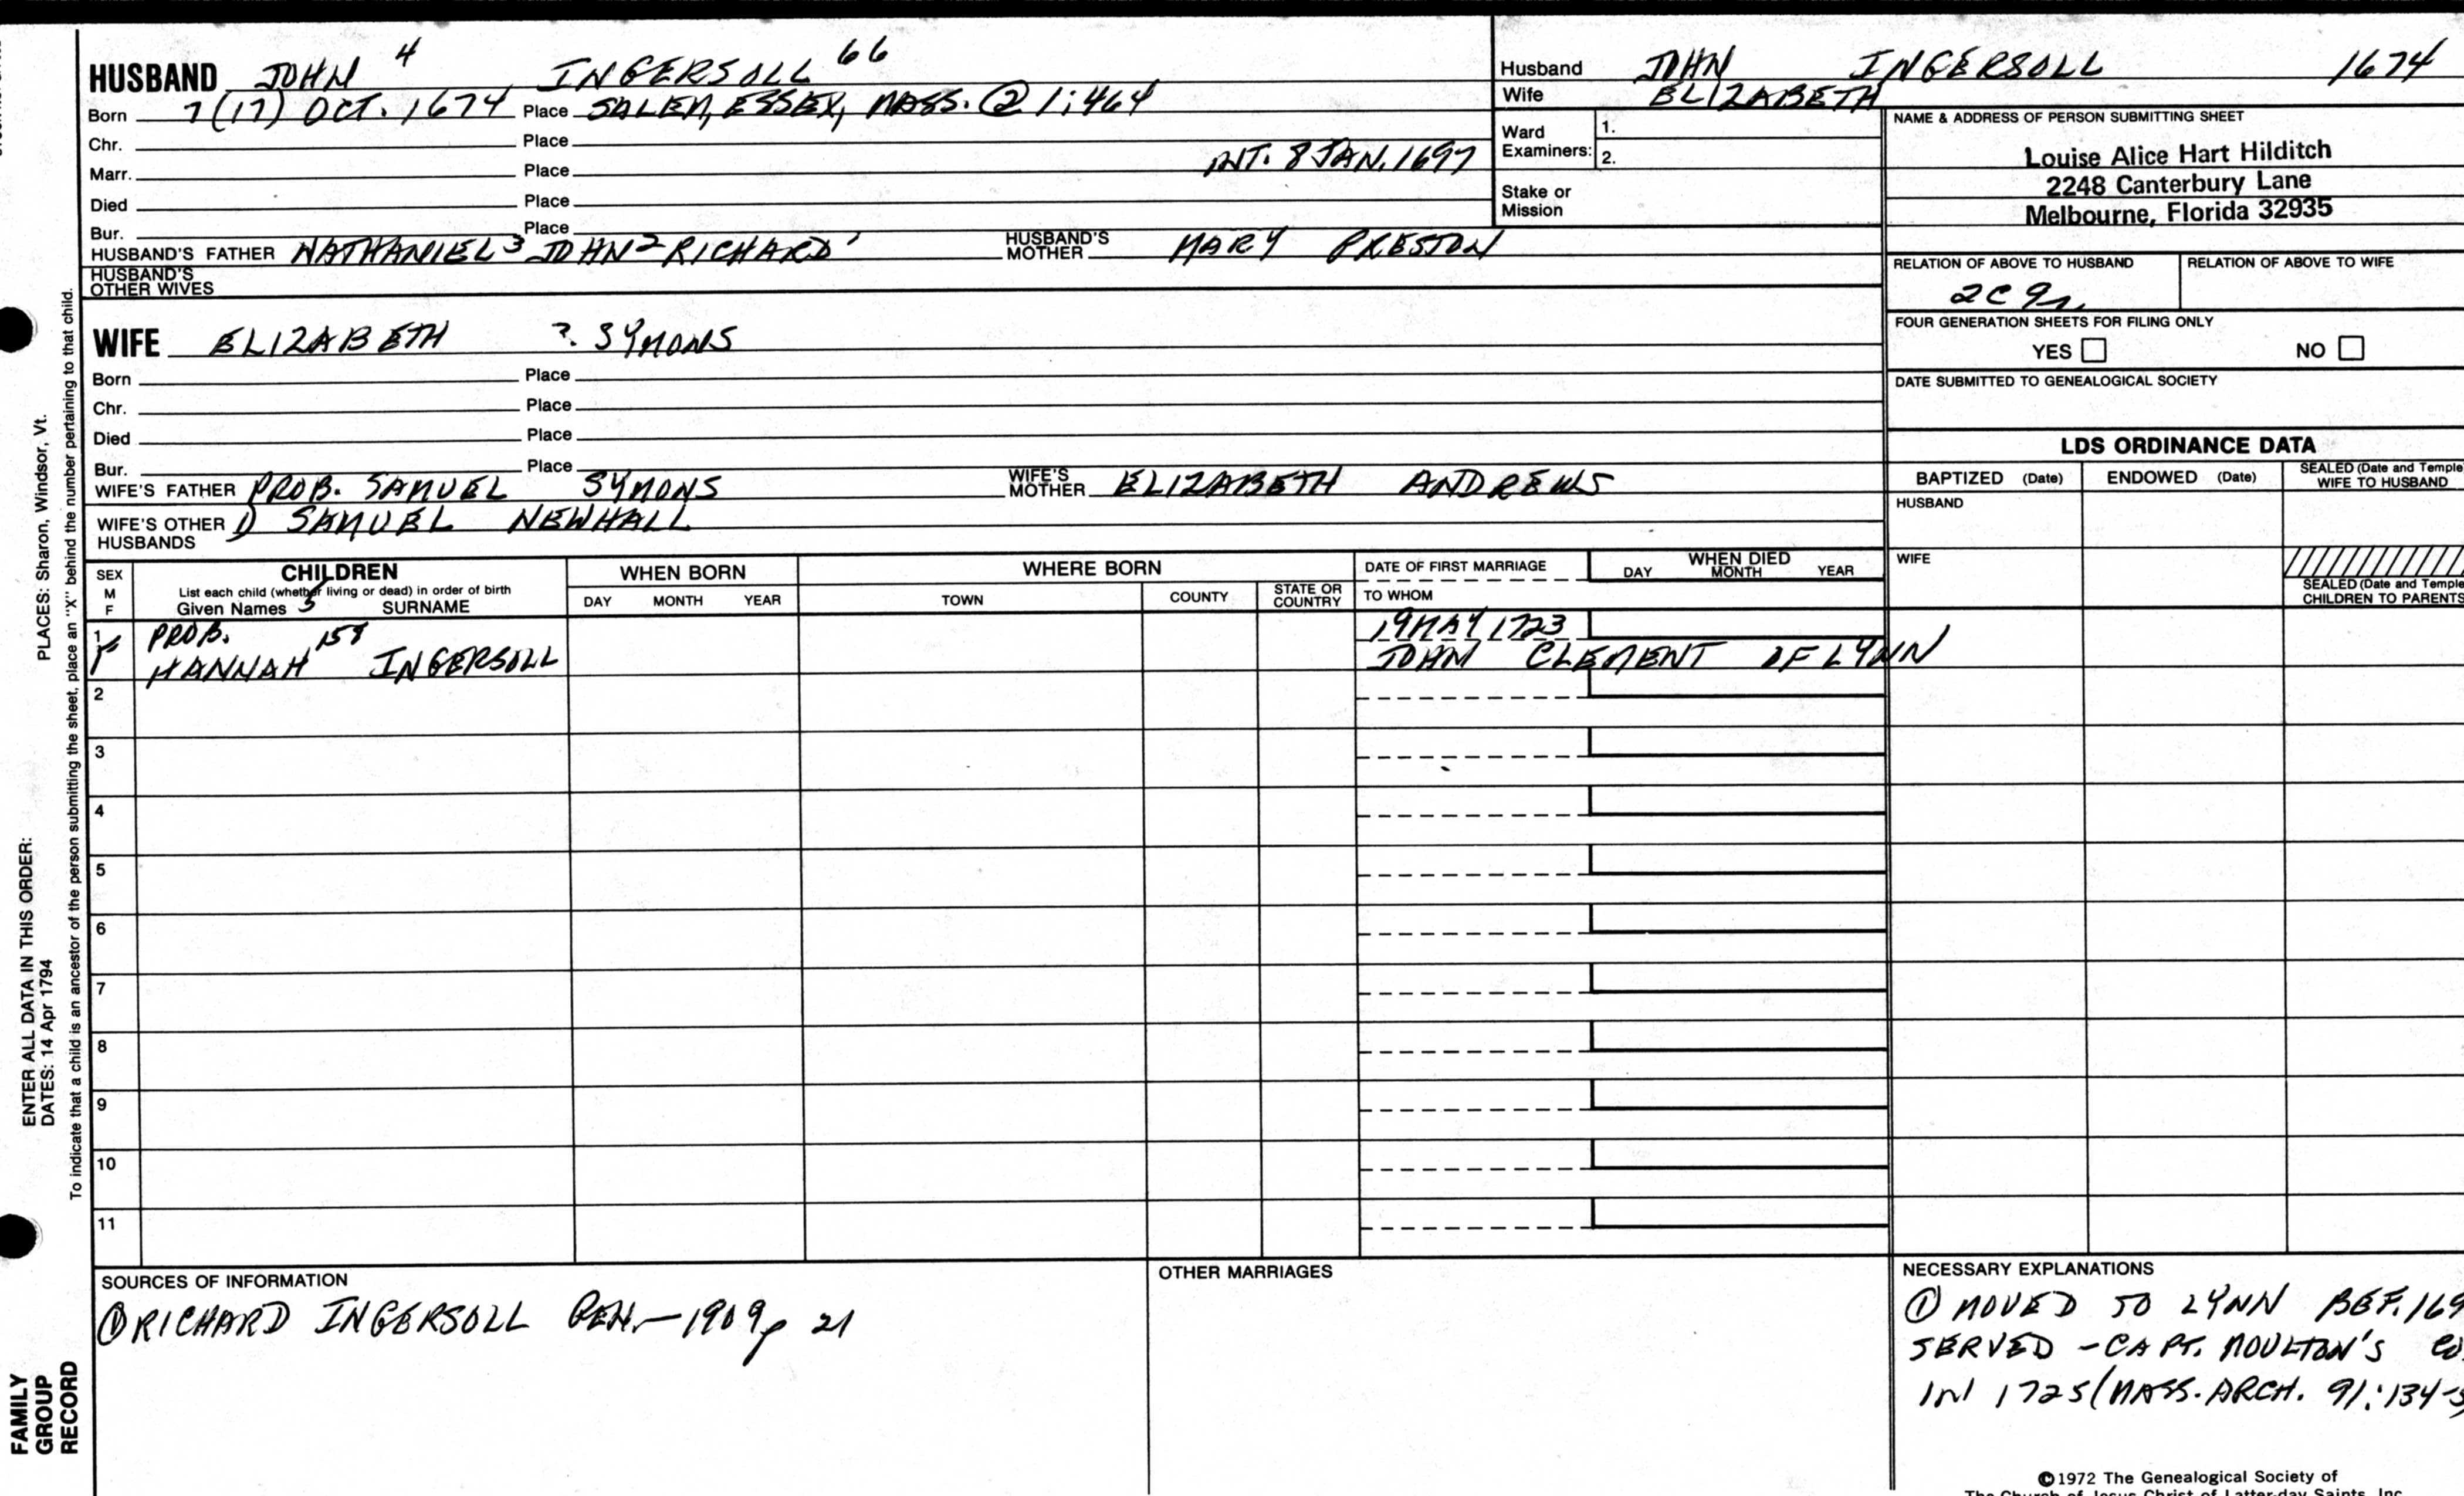 HUSBAND JOHN 4 INGERSOLL 66
Born 7(17) OCT. 1674 Place SALEM, ESSEX, MASS. @ 1:464
Chr. Place
Marr. Place INT. 8 JAN. 1697
Died Place
Bur. Place
HUSBAND'S FATHER NATHANIEL 3 JOHN 2 RICHARD 1 HUSBAND'S MOTHER MARY PRESTON
HUSBAND'S OTHER WIVES
WIFE ELIZABETH ? SYMONS
Born Place
Chr. Place
Died Place
Bur. Place
WIFE'S FATHER PROB. SAMUEL SYMONS WIFE'S MOTHER ELIZABETH ANDREWS
WIFE'S OTHER HUSBANDS 1) SAMUEL NEWHALL
Husband JOHN INGERSOLL 1674
Wife ELIZABETH
Ward Examiners: 1.
2.
Stake or Mission
NAME & ADDRESS OF PERSON SUBMITTING SHEET
Louise Alice Hart Hilditch
2248 Canterbury Lane
Melbourne, Florida 32935
RELATION OF ABOVE TO HUSBAND RELATION OF ABOVE TO WIFE
2C 9r.
FOUR GENERATION SHEETS FOR FILING ONLY
YES NO
DATE SUBMITTED TO GENEALOGICAL SOCIETY
LDS ORDINANCE DATA
BAPTIZED (Date) ENDOWED (Date) SEALED (Date and Temple WIFE TO HUSBAND
HUSBAND
WIFE
SEALED (Date and Temple
CHILDREN TO PARENTS
SEX M F
CHILDREN
List each child (whether living or dead) in order of birth
Given Names 5 SURNAME
WHEN BORN
DAY MONTH YEAR
WHERE BORN
TOWN COUNTY STATE OR COUNTRY
DATE OF FIRST MARRIAGE
TO WHOM
WHEN DIED
DAY MONTH YEAR
1 PROB. 158 19 MAY 1723
F HANNAH INGERSOLL JOHN CLEMENT OF LYNN
2
3
4
5
6
7
8
9
10
11
SOURCES OF INFORMATION
① RICHARD INGERSOLL GEN.—1909 p 21
OTHER MARRIAGES
NECESSARY EXPLANATIONS
① MOVED TO LYNN BEF. 169
SERVED - CAPT. MOULTON'S CO.
IN 1725 (MASS. ARCH. 91:134-5)
©1972 The Genealogical Society of
The Church of Jesus Christ of Latter-day Saints, Inc.
PLACES: Sharon, Windsor, Vt.
ENTER ALL DATA IN THIS ORDER:
DATES: 14 Apr 1794
To indicate that a child is an ancestor of the person submitting the sheet, place an "X" behind the number pertaining to that child.
FAMILY
GROUP
RECORD